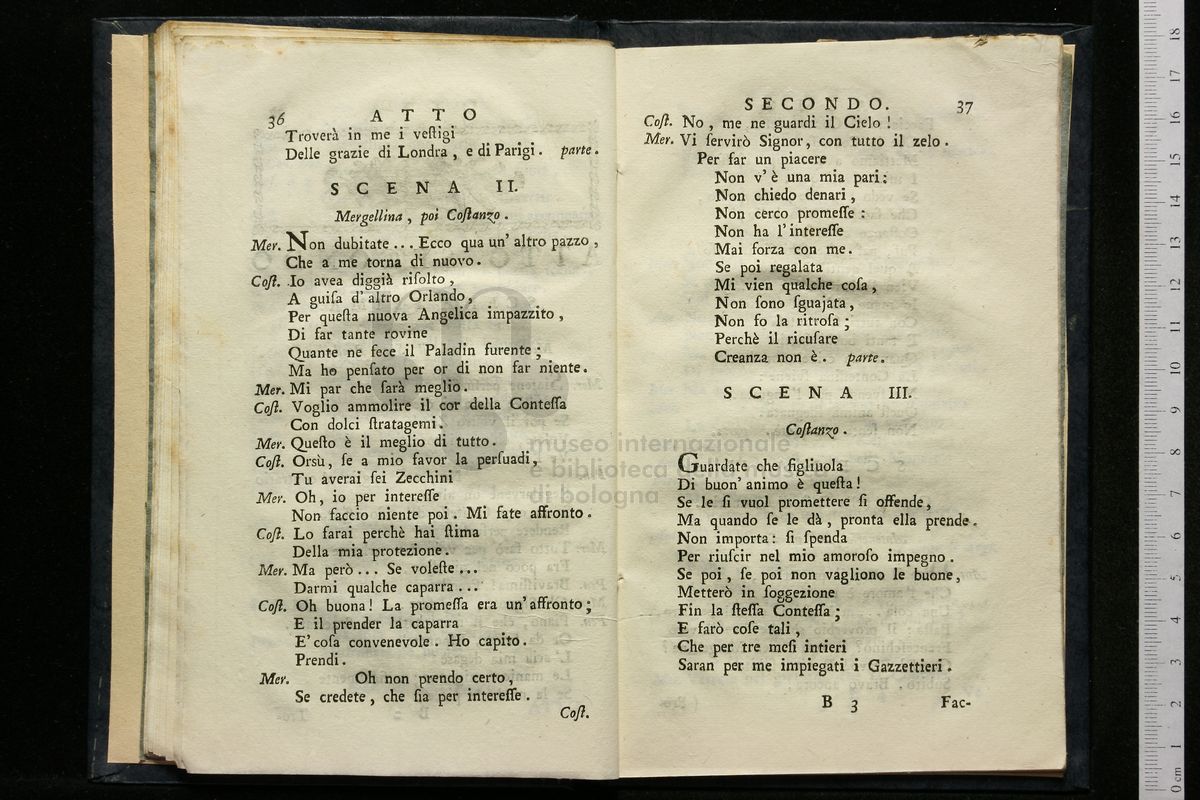 36 ATTO
Troverà in me i veſtigi
Delle grazie di Londra , e di Parigi . parte .
SCENA II.
Mergellina , poi Coſtanzo .
Mer. Non dubitate ... Ecco qua un' altro pazzo ,
Che a me torna di nuovo .
Coſt. Io avea diggià riſolto ,
A guiſa d' altro Orlando ,
Per queſta nuova Angelica impazzito ,
Di far tante rovine
Quante ne fece il Paladin furente ;
Ma ho penſato per or di non far niente .
Mer. Mi par che ſarà meglio .
Coſt. Voglio ammolire il cor della Conteſſa
Con dolci ſtratagemi .
Mer. Queſto è il meglio di tutto .
Coſt. Orsù , ſe a mio favor la perſuadi ,
Tu averai ſei Zecchini
Mer. Oh , io per intereſſe
Non faccio niente poi . Mi fate affronto .
Coſt. Lo farai perchè hai ſtima
Della mia protezione .
Mer. Ma però ... Se voleſte ...
Darmi qualche caparra ...
Coſt. Oh buona ! La promeſſa era un' affronto ;
E il prender la caparra
E' coſa convenevole . Ho capito .
Prendi .
Mer. Oh non prendo certo ,
Se credete , che ſia per intereſſe .
Coſt.
SECONDO. 37
Coſt. No , me ne guardi il Cielo !
Mer. Vi ſervirò Signor , con tutto il zelo .
Per far un piacere
Non v' è una mia pari :
Non chiedo denari ,
Non cerco promeſſe :
Non ha l' intereſſe
Mai forza con me .
Se poi regalata
Mi vien qualche coſa ,
Non ſono ſguajata ,
Non fo la ritroſa ;
Perchè il ricuſare
Creanza non è . parte .
SCENA III.
Coſtanzo .
Guardate che figliuola
Di buon' animo è queſta !
Se le ſi vuol promettere ſi offende ,
Ma quando ſe le dà , pronta ella prende .
Non importa : ſi ſpenda
Per riuſcir nel mio amoroſo impegno .
Se poi , ſe poi non vagliono le buone ,
Metterò in ſoggezione
Fin la ſteſſa Conteſſa ;
E farò coſe tali ,
Che per tre meſi intieri
Saran per me impiegati i Gazzettieri .
B 3 Fac-
museo internazionale
e biblioteca della musica
di bologna
0 cm 1 2 3 4 5 6 7 8 9 10 11 12 13 14 15 16 17 18